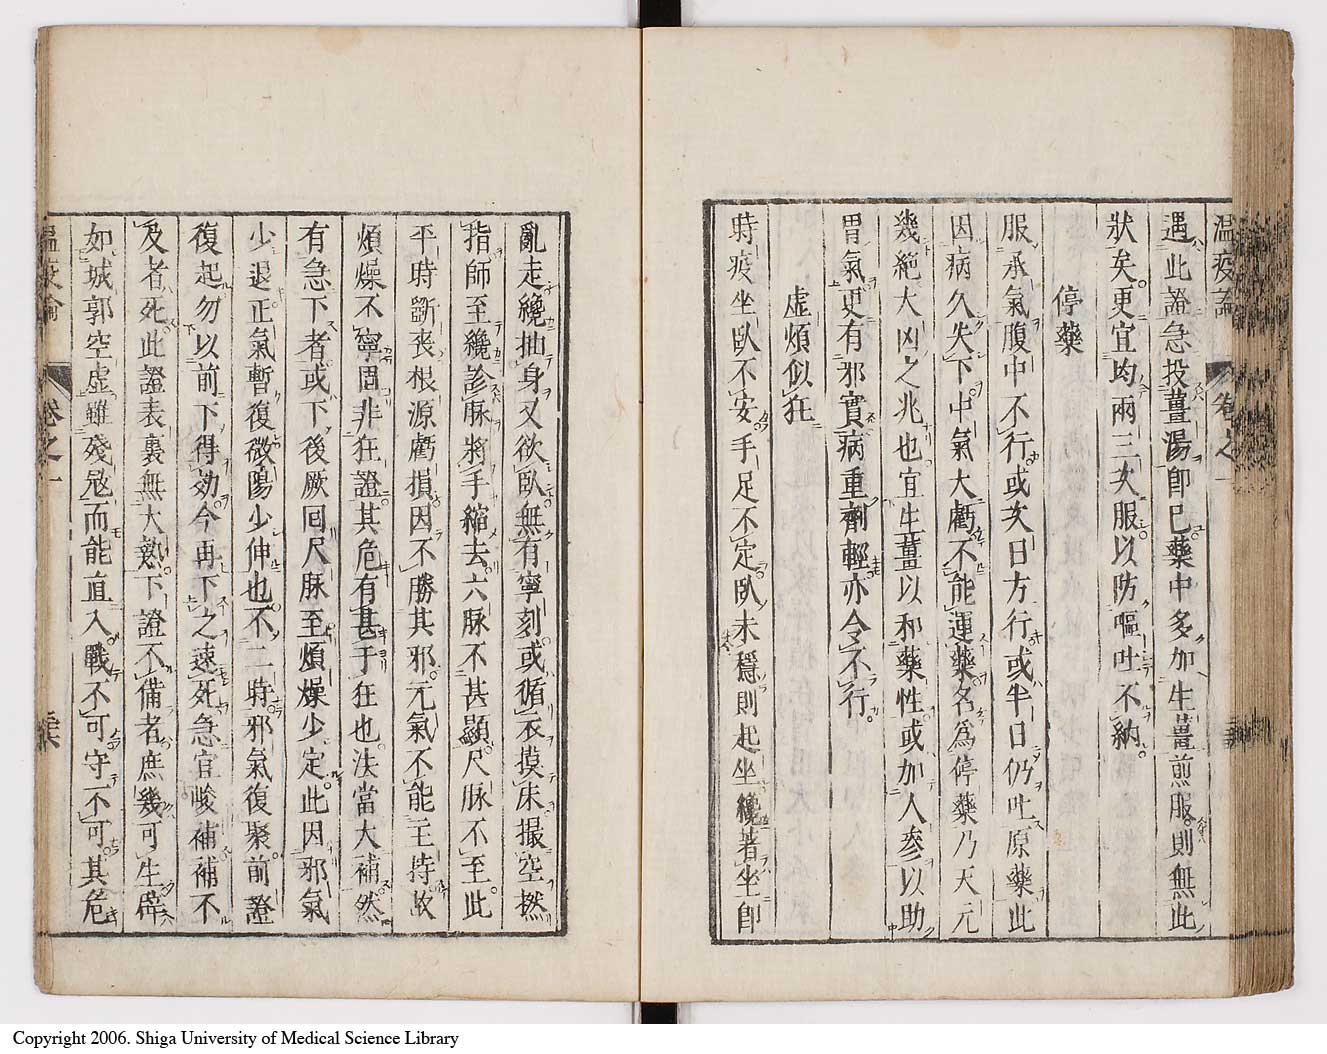 温疫論 卷之一
遇此證急投薑湯即已藥中多加生薑煎服則無此
狀矣更宜均兩三次服以防嘔吐不納
停藥
服承氣腹中不行或次日方行或半日仍吐原藥此
因病久失下中氣大虧不能運藥名爲停藥乃天元
幾絕大凶之兆也宜生薑以和藥性或加人參以助
胃氣更有邪實病重劑輕亦令不行
虛煩似狂
時疫坐臥不安手足不定臥未穩則起坐纔著坐即
亂走纔抽身又欲臥無有寧刻或循衣摸床撮空撚
指師至纔診脉將手縮去六脉不甚顯尺脉不至此
平時斵喪根源虧損因不勝其邪元氣不能主持故
煩燥不寧固非狂證其危有甚于狂也法當大補然
有急下者或下後厥囘尺脉至煩燥少定此因邪氣
少退正氣暫復微陽少伸也不二時邪氣復聚前證
復起勿以前下得効今再下之速死急宜峻補補不
及者死此證表裏無大熱下證不備者庶幾可生辟
如城郭空虛雖殘寇而能直入戰不可守不可其危
溫疫論 卷之一
Copyright 2006. Shiga University of Medical Science Library